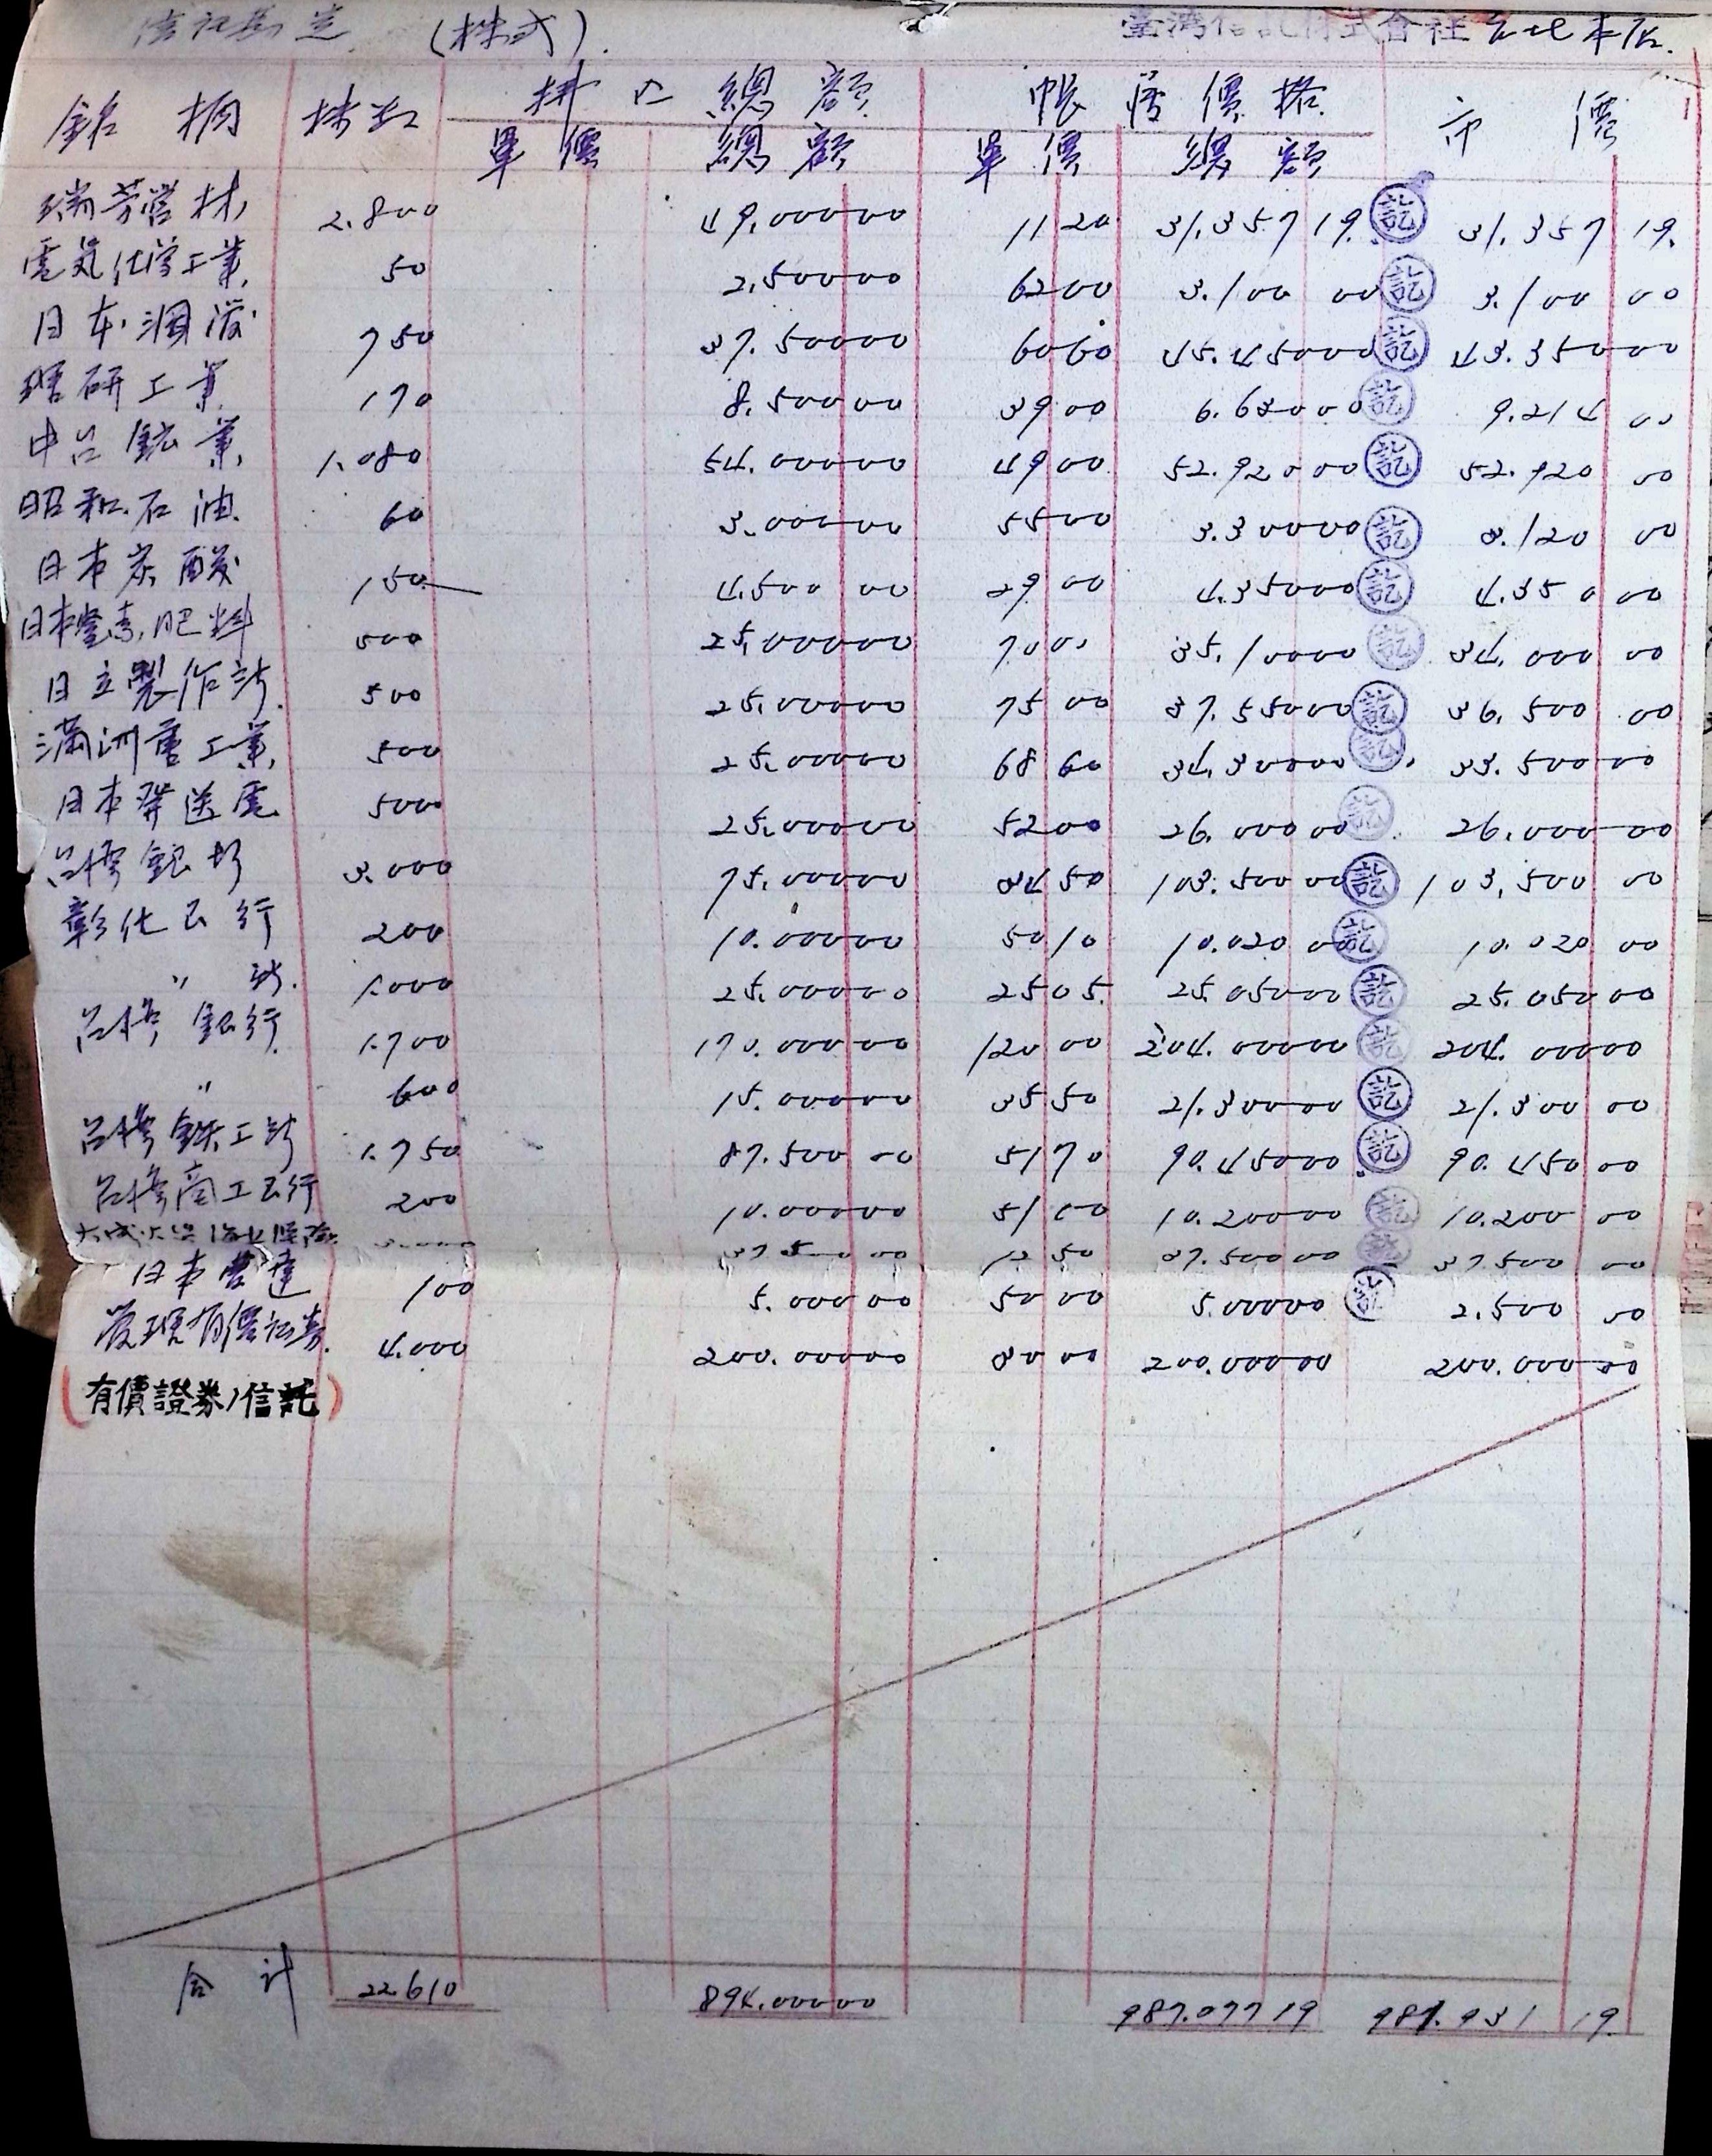 信託勘定 (株式). 臺灣信託株式會社 台北本店.
銘柄 株数 拂込總額 帳簿價格 市價
單價 總額 單價 總額
瑞芳営林 2.800 49.000 00 11 20 31.357 19. 訖 31.357 19.
電気化学工業 50 2,500 00 62 00 3.100 00 訖 3.100 00
日本油 750 37.500 00 60 60 45.450 00 訖 43.350 00
理研工業 170 8.500 00 39 00 6.630 00 訖 9.214 00
中台鉱業 1.080 54.000 00 49 00 52.920 00 訖 52.920 00
昭和石油 60 3.000 00 55 00 3.300 00 訖 3.120 00
日本炭酸 150 4.500 00 29 00 4.350 00 訖 4.350 00
日本窒素肥料 500 25,000 00 70 35.100 00 訖 34.000 00
日立製作所 500 25.000 00 75 00 37.550 00 訖 36.500 00
満洲重工業 500 25.000 00 68 60 34.300 00 訖 33.500 00
日本発送電 500 25.000 00 52 00 26.000 00 訖 26.000 00
台湾銀行 3.000 75.000 00 34 50 103.500 00 訖 103,500 00
彰化銀行 200 10.000 00 50 10 10.020 00 訖 10.020 00
〃 新 1.000 25.000 00 25 05 25.050 00 訖 25.050 00
台湾銀行 1.700 170.000 00 120 00 204.000 00 訖 204.000 00
〃 600 15.000 00 35 50 21.300 00 訖 21.300 00
台湾鉄工所 1.750 87.500 00 51 70 90.450 00 訖 90.450 00
台湾商工銀行 200 10.000 00 51 00 10.200 00 訖 10.200 00
大成火災海上保険 3.000 37.500 00 12 50 37.500 00 訖 37.500 00
日本営達 100 5.000 00 50 00 5.000 00 訖 2.500 00
管理有價証券 4.000 200.000 00 00 200.000 00 200.000 00
(有價證券ノ信託)
合計 22.610 894.000 00 987.077 19 987.931 19